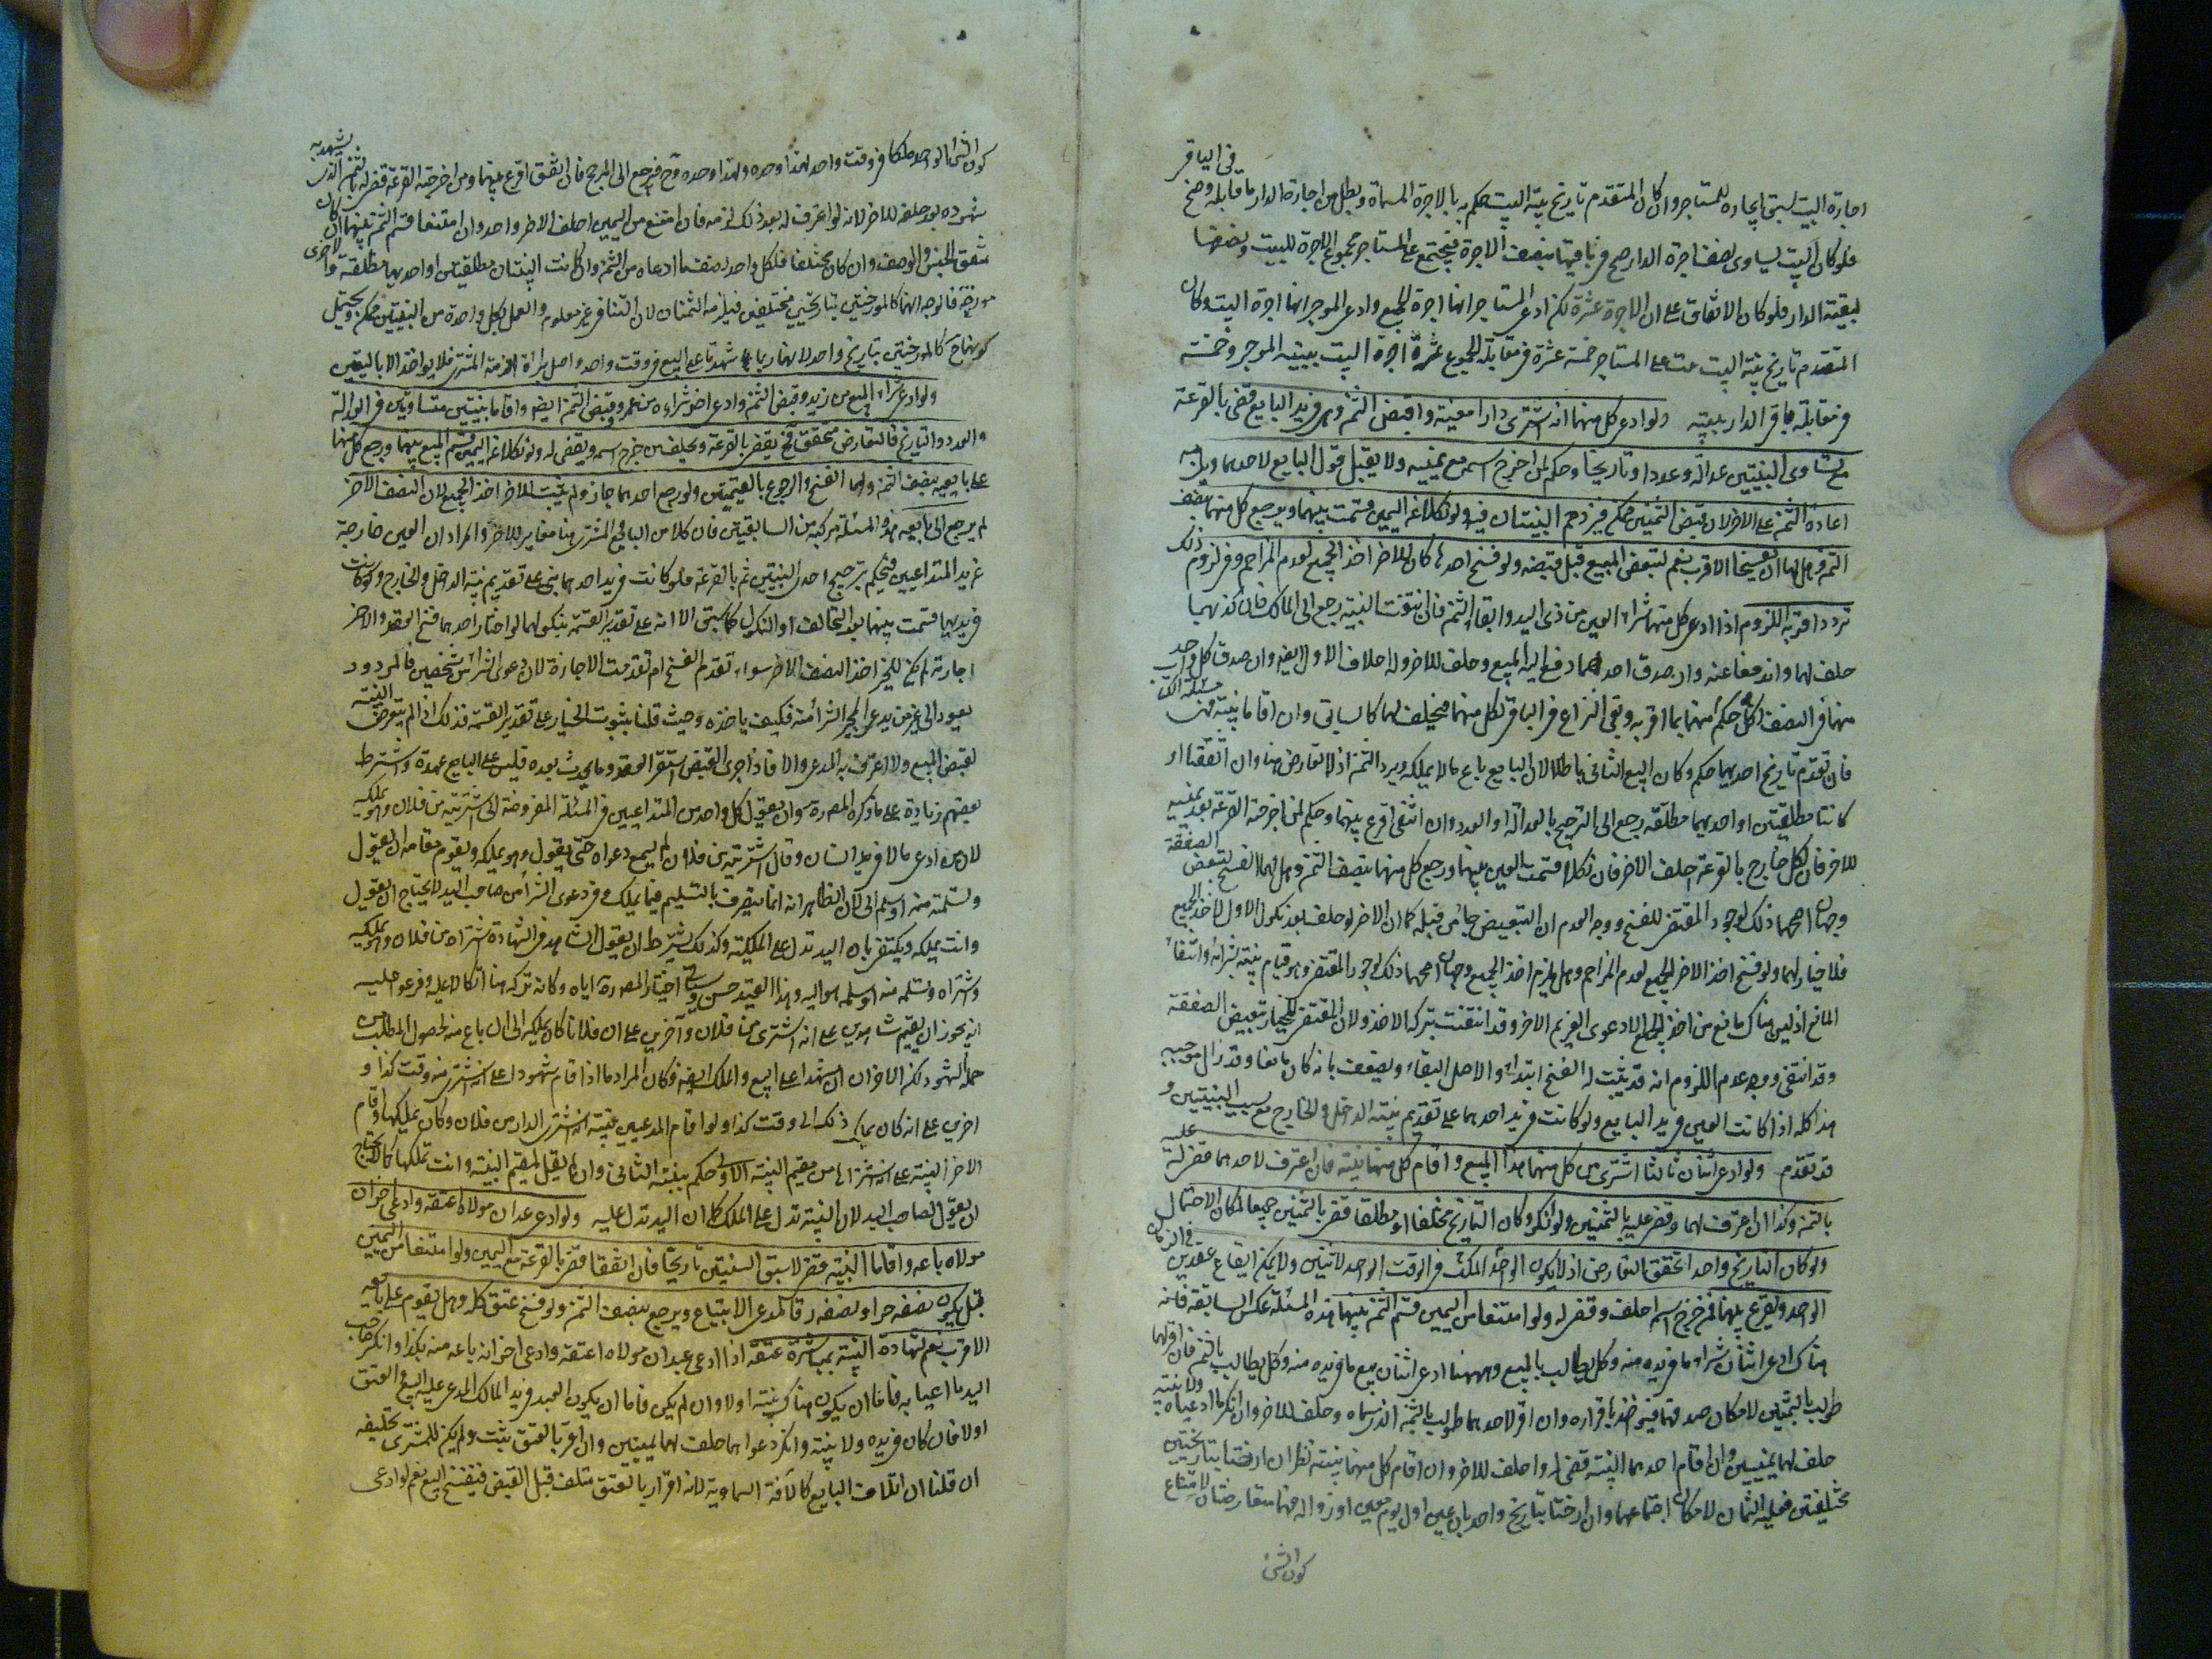 في الباقي
اجارة البيت لسبق ايجاره للمستاجر وان كان المتقدم تاريخ بينة البيت حكم به بالاجرة المسماة وبطل من اجارة الدار ما قابله وصح
فلو كان البيت يساوي نصف اجرة الدار صح في باقيها بنصف الاجرة فيجتمع على المستاجر مجموع الاجرة للبيت ونصفها
لبقية الدار فلو كان الاتفاق على ان الاجرة عشرة لكن ادعى المستاجر انها اجرة الجميع وادعى الموجر انها اجرة البيت وكان
المتقدم تاريخ بينة البيت على المستاجر خمسة عشرة في مقابلة المجموع عشرة اجرة البيت ببينة الموجر وخمسة
في مقابلة باقي الدار ببينته ولو ادعى كل منهما انه اشترى دارا معينة واقبض الثمن وهي في يد البايع قضي بالقرعة
مع تساوي البينتين عدالة وعددا وتاريخا وحكم لمن اخرج اسمه مع يمينه ولا يقبل قول البايع لاحدهما ويلزمه
اعادة الثمن على الاخر لان قبض الثمنين ممكن فتزدحم البينتان فيه ولو نكلا عن اليمين قسمت بينهما ويرجع كل منهما بنصف
الثمن وهل لهما ان يفسخا الاقرب نعم لتبعض المبيع قبل قبضه ولو فسخ احدهما كان للاخر اخذ الجميع لعدم المزاحم وفي لزوم ذلك
تردد اقربه اللزوم اذا ادعى كل منهما شراء العين من ذي اليد وايفاء الثمن فان انتفت البينة رجع الى المالك فان كذبهما
حلف لهما واندفعا عنه وان صدق احدهما دفع اليه المبيع وحلف للاخر وله احلاف الاول ايضا وان صدق كل واحد
منهما في النصف حكم لكل منهما بما اقر به وبقي النزاع في الباقي لكل منهما فيحلف لهما كما سياتي وان اقاما بينة
فان تقدم تاريخ احديهما حكم وكان البيع الثاني باطلا لان البايع باع ما لا يملكه ويرد الثمن اذ لا تعارض هنا وان اتفقتا او
كانتا مطلقتين او احديهما مطلقة رجع الى الترجيح بالعدالة او العدد وان انتفى اقرع بينهما وحكم لمن اخرجته القرعة بعد يمينه
للاخر فان نكل خارج بالقرعة احلف الاخر فان نكلا قسمت العين بينهما ورجع كل منهما بنصف الثمن وهل لهما الفسخ لتبعض الصفقة
وجهان اصحهما ذلك لوجود المقتضي للفسخ ووجه العدم ان التبعيض جاء من قبله كما ان الاخر لو حلف بعد نكول الاول لاخذ الجميع
فلا خيار لهما ولو فسخ اخذ الاخر الجميع لعدم المزاحم وهل يلزم اخذ الجميع وجهان اصحهما ذلك لوجود المقتضي وهو قيام بينة بشرائه وانتفاء
المانع اذ ليس هناك مانع من اخذ الجميع الا دعوى الغريم الاخر وقد انتفت بتركه الاخذ ولان المقتضي للخيار تبعيض الصفقة
وقد انتفى ووجه عدم اللزوم انه قد يثبت له الفسخ ابتداء والاصل البقاء ويضعف بانه كان مانعا وقد زال موجبه
هذا كله اذا كانت العين في يد البايع ولو كانت في يد احدهما على تقديم بينة الداخل والخارج مع سبب البينتين و
قد تقدم ولو ادعى اثنان ان ثالثا اشترى من كل منهما هذا المبيع واقام كل منهما بينة فان اعترف لاحدهما قضي له عليه
بالثمن وكذا ان اعترف لهما قضي عليه بالثمنين ولو انكر وكان التاريخ مختلفا او مطلقا قضي بالثمنين جميعا لمكان الاحتمال
ولو كان التاريخ واحدا تحقق التعارض اذ لا يكون الواحد الملك في الوقت الواحد لاثنين ولا يمكن ايقاع عقدين في الزمان
الواحد ويقرع بينهما فمن خرج اسمه احلف وقضي له ولو امتنعا من اليمين قسم الثمن بينهما هذه المسئلة عكس السابقة فانه
هناك ادعى اثنان شراء ما في يده منه وكل يطالب بالمبيع وههنا ادعى اثنان بيع ما في يده منه وكل يطالب بالثمن فان اقر لهما
طولب بالثمنين لامكان صدقهما فيؤخذ باقراره وان اقر لاحدهما طولب بالثمن الذي سماه وحلف للاخر وان انكر ما ادعياه ولا بينة
حلف لهما يمينين وان اقام احدهما البينة قضي له واحلف للاخر وان اقام كل منهما بينة نظر ان ارختا بتاريخين
مختلفين فعليه الثمنان لامكان اجتماعهما وان ارختا بتاريخ واحد بان عين اول يوم معين او زواله فهما متعارضتان لامتناع
كون الشئ
كون الشئ الواحد ملكا في وقت واحد لهذا وحده ولهذا وحده وح فيرجع الى المرجح فان اتفق اقرع بينهما ومن اخرجته القرعة قضي له بالثمن الذي يشهد به
شهوده بعد حلفه للاخر لانه لو اعترف له بعد ذلك لزمه فان امتنع من اليمين احلف الاخر واخد وان امتنعا قسم الثمن بينهما ان كان
متفق الجنس والوصف وان كان مختلفا فلكل واحد نصف ما ادعاه من الثمن وان كانت البينتان مطلقتين او احديهما مطلقة والاخرى
مورخة فالوجه انهما كالمورختين بتاريخين مختلفين فيلزمه الثمنان لان التنافي غير معلوم والعمل بكل واحدة من البينتين ممكن ويحتمل
كونهما كالمورختين بتاريخ واحد لانهما ربما شهدتا على البيع في وقت واحد واصل براءة الذمة المشتري فلا يواخذ الا باليقين
ولو ادعى شراء المبيع من زيد وقبض الثمن وادعى اخر شراءه من عمرو وقبض الثمن ايضا واقاما بينتين متساويتين في العدالة
والعدد والتاريخ فالتعارض متحقق فح يقضي بالقرعة ويحلف من خرج اسمه ويقضى له ولو نكلا عن اليمين قسم المبيع بينهما ورجع كل منهما
على بايعه بنصف الثمن ولهما الفسخ والرجوع بالثمنين ولو رجع احدهما جاز ولم يثبت للاخر اخذ الجميع لان النصف الاخر
لم يرجع الى بايعه هذه المسئلة مركبة من السابقتين فان كلا من البايع والمشتري هنا مغاير للاخر والمراد ان العين خارجة
عن يد المتداعيين فيحكم بترجيح احدى البينتين ثم بالقرعة فلو كانت في يد احدهما بني على تقديم بينة الداخل والخارج ولو كانت
في يديهما قسمت بينهما بعد التحالف او النكول كما سبق الا انه على تقدير القسمة بنكولهما لو اختار احدهما فسخ العقد والاخر
اجازته لم يكن للمجيز اخذ النصف الاخر سواء تقدم الفسخ ام تقدمت الاجازة لان دعوى الشراء من شخصين فالمردود
يعود الى غير من يدعي المجيز الشراء منه فكيف ياخذه وحيث قلنا بثبوت الخيار على تقدير القسمة فذلك اذا لم يتعرض البينة
لقبض المبيع ولا اعترف به المدعي والا فاذا جرى القبض استقر العقد وما يحدث بعده فليس على البايع عهدة واشترط
بعضهم زيادة على ما ذكره المصنف ان يقول كل واحد من المتداعيين في المسئلة المفروضة اني اشتريته من فلان وهو يملكه
لان من ادعى مالا في يد انسان وقال اشتريته من فلان لم يسمع دعواه حتى يقول وهو يملكه ويقوم مقامه ان يقول
وتسلمته منه او سلمه الي لان الظاهر انه انما يتصرف بالتسليم فيما يملك وفي دعوى الشراء من صاحب اليد لا يحتاج ان يقول
وانت يملكه ويكتفي بان اليد تدل على الملكية وكذلك يشترط ان يقول الشاهد في الشهادة اشتراه من فلان وهو يملكه
واشتراه وتسلمه منه او سلمه هو اليه وهذا القيد حسن وسياتي اختيار المصنف اياه وكانه تركه هنا اتكالا عليه وفرعوا عليه
انه يجوز ان يقيم شاهدين على انه اشترى من فلان وآخرين على ان فلانا كان يملكه الى ان باع منه لحصول المطلب من
جملة الشهود لكن الاخران ان شهدا على البيع والملك ايضا وكان المراد ما اذا قام شهود على انه اشترى منه وقت كذا و
اخرى على انه كان يملك ذلك الى وقت كذا ولو اقام المدعيين بينة انه اشترى الدار من فلان وكان يملكها واقام
الاخر البينة على انه اشتراها من مقيم البينة الاولى حكم ببينة الثاني وان لم يقل لمقيم البينة وانت تملكها كما لا يحتاج
ان يقول لصاحب اليد لان البينة تدل على الملك كما ان اليد تدل عليه ولو ادعى عبد ان مولاه اعتقه وادعى اخر ان
مولاه باعه واقاما البينة قضي لاسبق البينتين تاريخا فان اتفقتا قضي بالقرعة مع اليمين ولو امتنعا من اليمين
قيل يكون نصفه حرا ونصفه رقا لمدعي الابتياع ويرجع بنصف الثمن ولو فسخ عتق كله وهل يقوم على بايعه
الاقرب نعم لشهادة البينة بمباشرة عتقه اذا ادعى عبد ان مولاه اعتقه وادعى اخر انه باعه منه بكذا وانكر صاحب
اليد ما ادعيا به فاما ان يكون هناك بينة اولا وان لم يكن فاما ان يكون العبد في يد المالك المدعى عليه البيع والعتق
اولا فان كان في يده ولا بينة وانكر دعواهما حلف لهما يمينين وان اقر بالعتق ثبت ولم يكن للمشتري تحليفه
ان قلنا ان اتلاف البايع كالآفة السماوية لانه اقرار بالعتق متلف قبل القبض فينفسخ البيع نعم لو ادعى